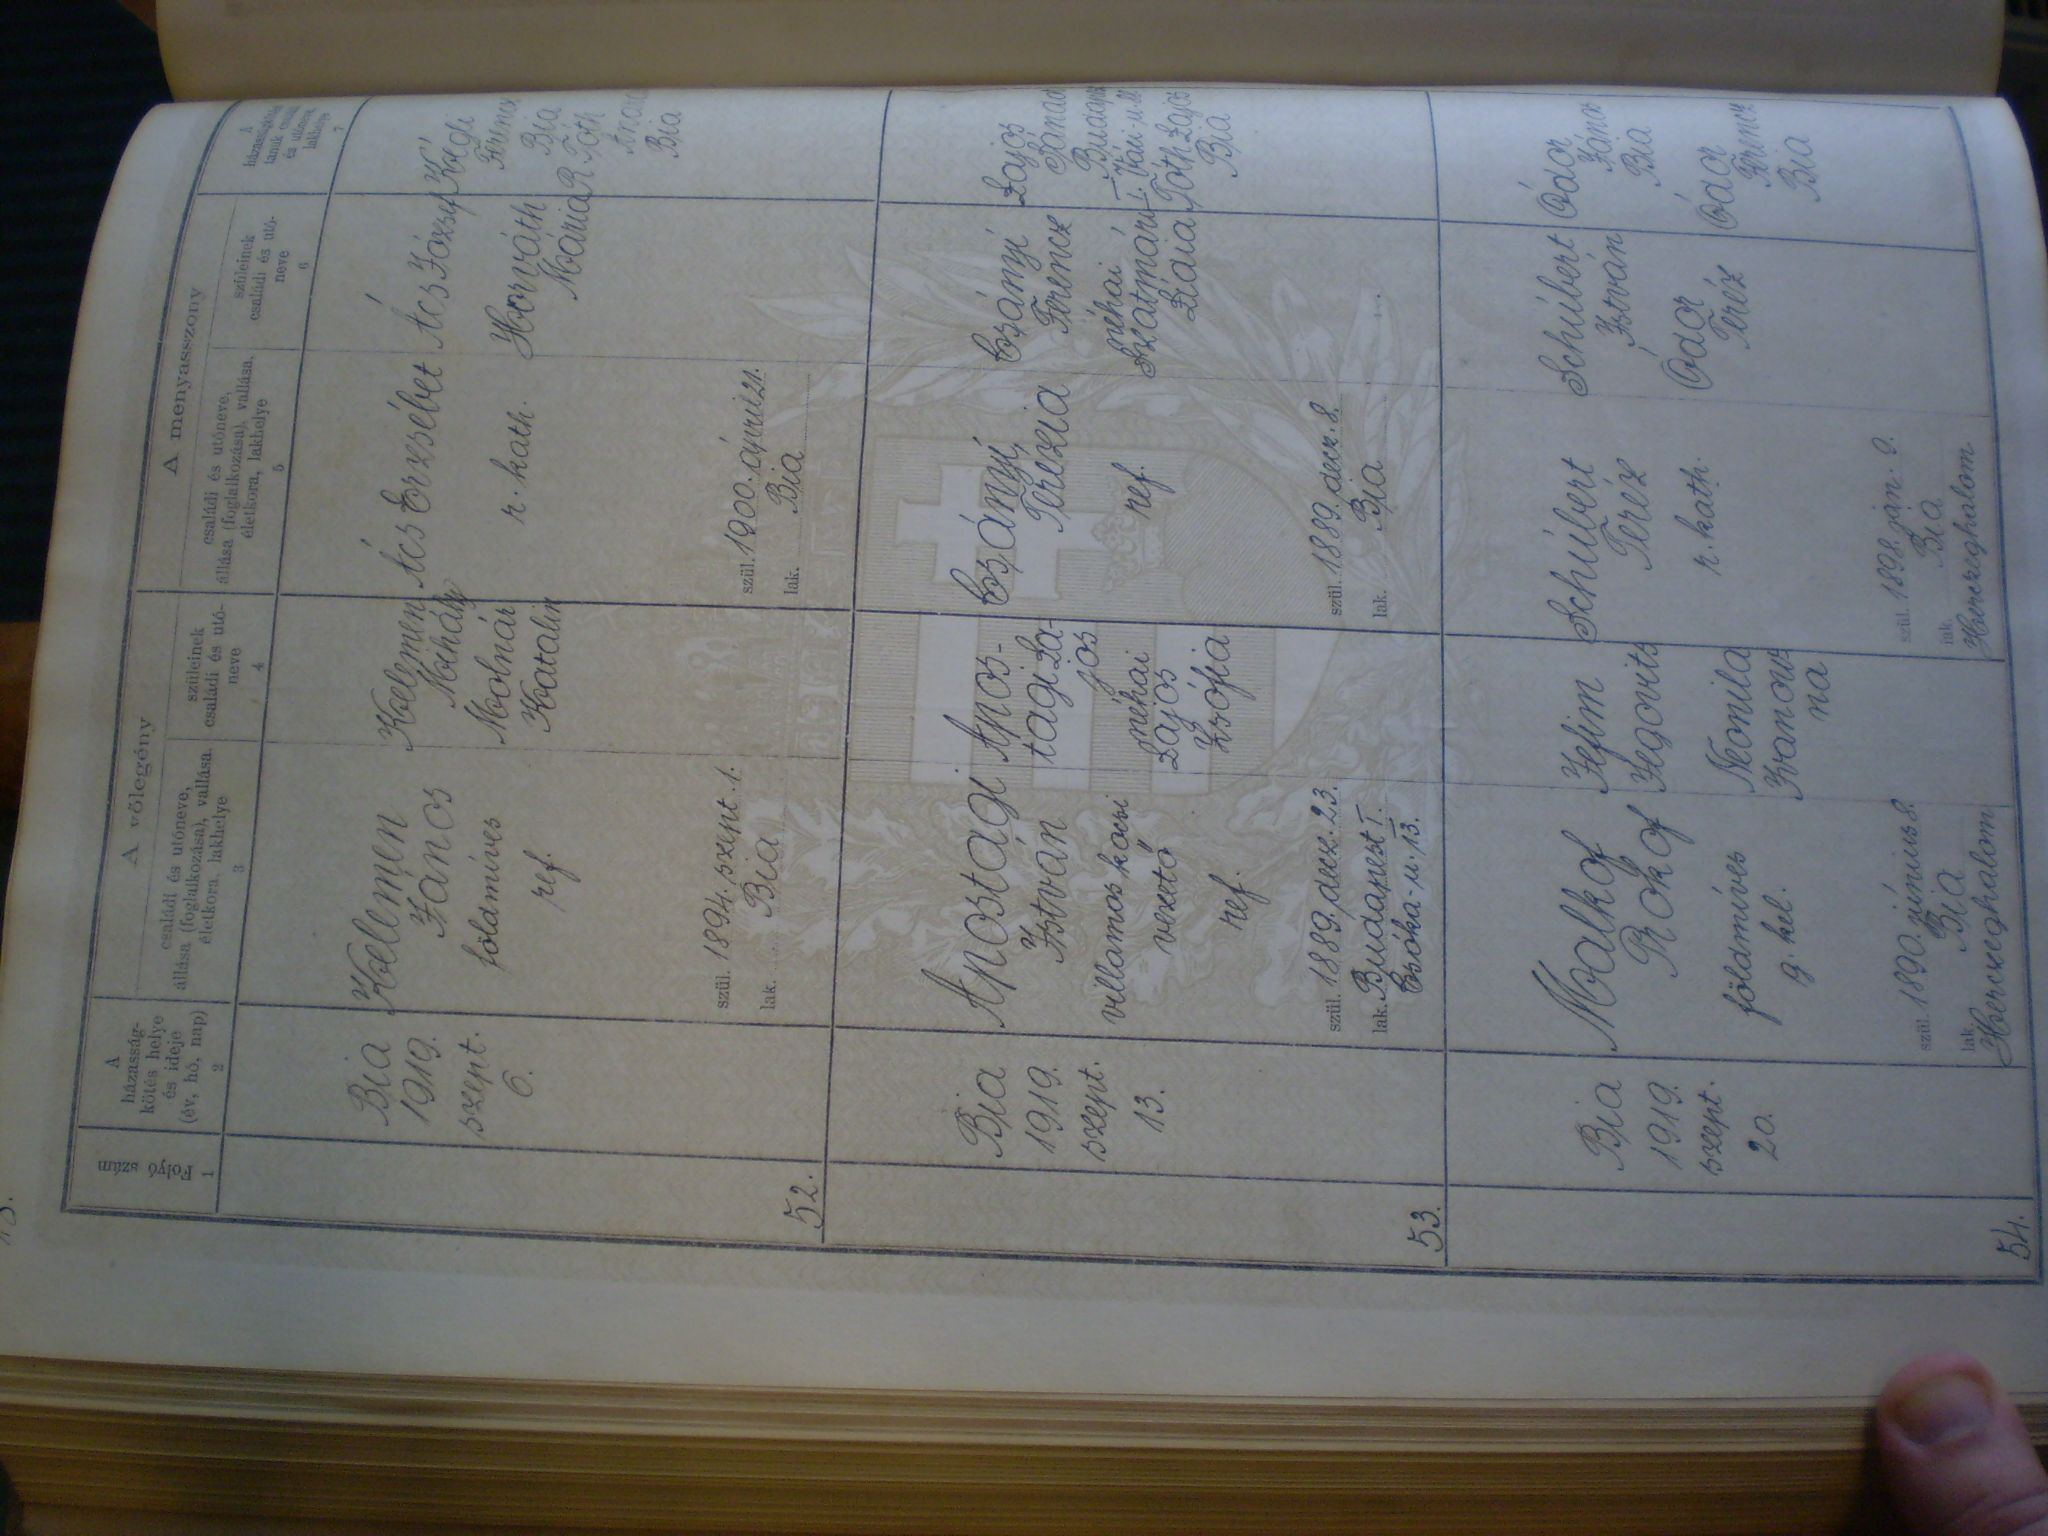 A vőlegény
A menyasszony
Folyó
szám
1
A
házasság-
kötés helye
és ideje
(év, hó, nap)
2
családi és utóneve,
állása (foglalkozása), vallása,
életkora, lakhelye
3
szüleinek
családi és utó-
neve
4
családi és utóneve,
állása (foglalkozása), vallása,
életkora, lakhelye
5
szüleinek
családi és utó-
neve
6
A
házasságkötési
tanuk családi
és utóneve,
lakhelye
7
52.
Bia
1919.
szept.
6.
Kelemen
János
földmíves
ref.
szül. 1894. szept. 1.
Bia
lak.
Kelemen
Mihály
Molnár
Katalin
Ács Erzsébet
r. kath.
szül. 1900. április 21.
Bia
lak.
Ács József
Horváth
Mária
Kégli
Ferencz
Bia
R Tóth
Bia
53.
Bia
1919.
szept.
13.
Apostagi
István
villamos kocsi
vezető
ref.
szül. 1889. decz. 23.
lak. Budapest I.
Csóka-u. 13.
Apos-
tagi La-
jos
néhai
Lajos
Zsófia
Csányi
Terézia
ref.
szül. 1889. decz. 8.
lak. Bia
Csányi
Ferencz
néhai
Szatmári
Lidia
Lajos
Budapest
Tóth Lajos
Bia
54.
Bia
1919.
szept.
20.
Malkof
Rokof
földmíves
g. kel.
szül. 1890. június 8.
Bia
lak.
Herczeghalom
Jefim
Jegovits
Neonila
Ivanow
na
Schúbert
Teréz
r. kath.
szül. 1898. ján. 9.
Bia
lak.
Herczeghalom
Schúbert
István
Ódor
Teréz
Ódor
János
Bia
Ódor
Ferencz
Bia